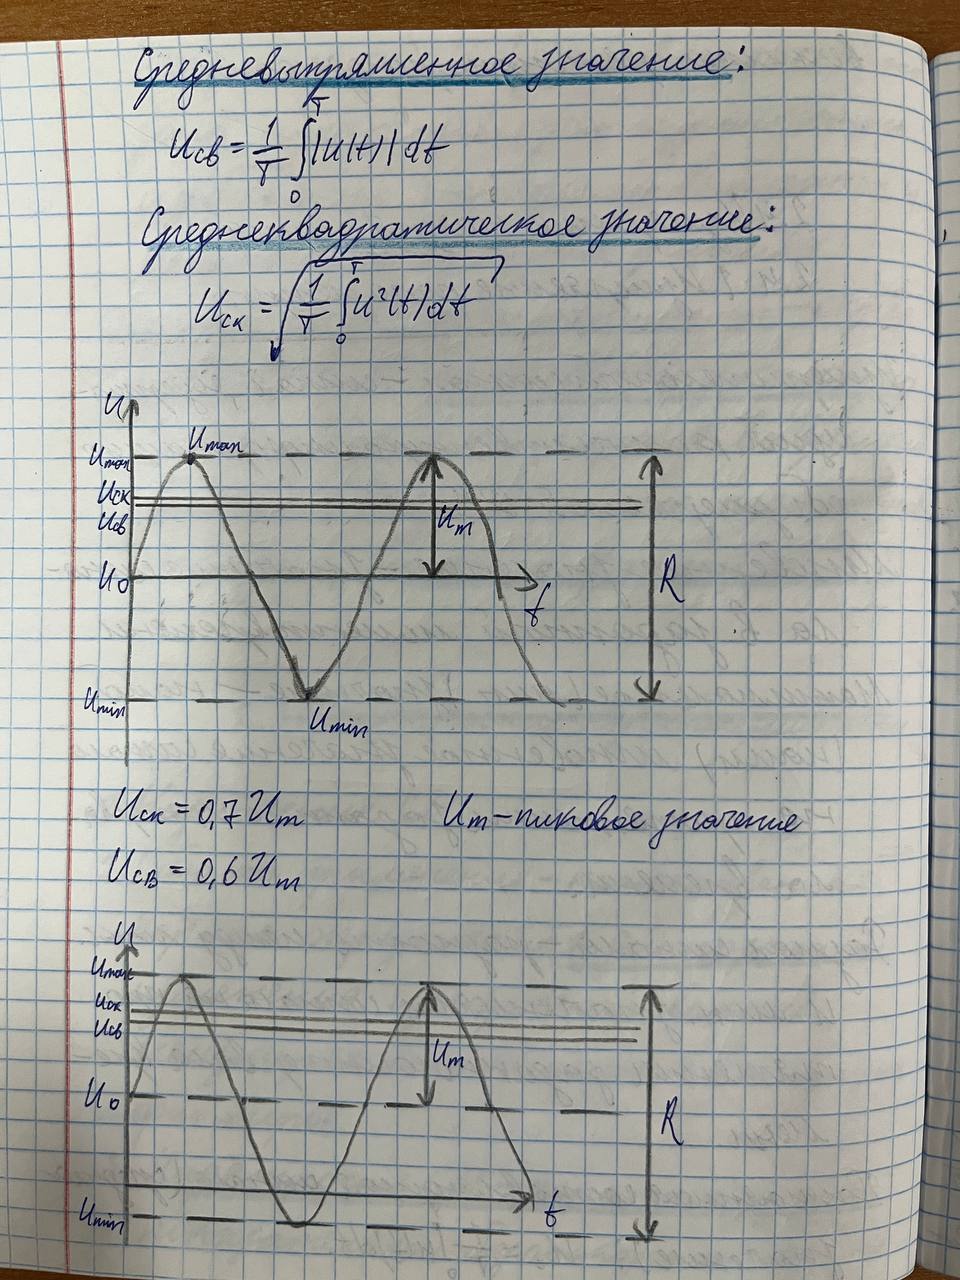 Средневыпрямленное значение:
Uсв = 1/T ∫₀ᵀ |u(t)| dt
Среднеквадратическое значение:
Uск = √(1/T ∫₀ᵀ u²(t) dt)
U
Umax Umax
Uск
Uсв Um
U0 t R
Umin Umin
Uск = 0,7 Um Um – пиковое значение
Uсв = 0,6 Um
U
Umax
Uск
Uсв Um
U0 R
Umin t